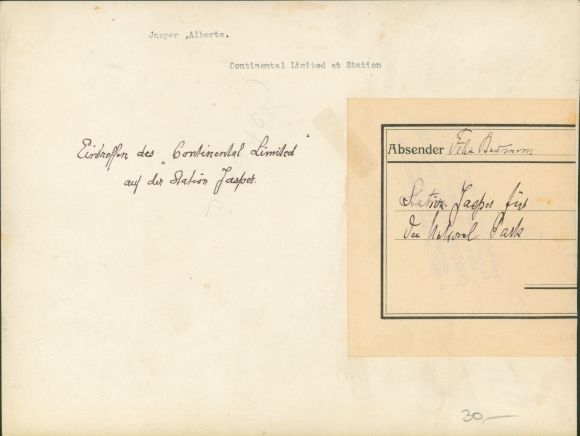 Jasper ,Alberta.
Continental Limited at Station
Eintreffen des „Continental Limited"
auf der Station Jasper.
Absender Felix
Station Jasper für
den National Park
30,—